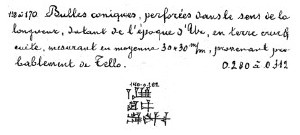 118 à 170. Bulles coniques, perforées dans le sens de la
longueur, datant de l'époque d'Ur, en terre crue &
cuite, mesurant en moyenne 30 x 30 m/m, provenant pro-
bablement de Tello. 0.280 à 0.312
140 0.282